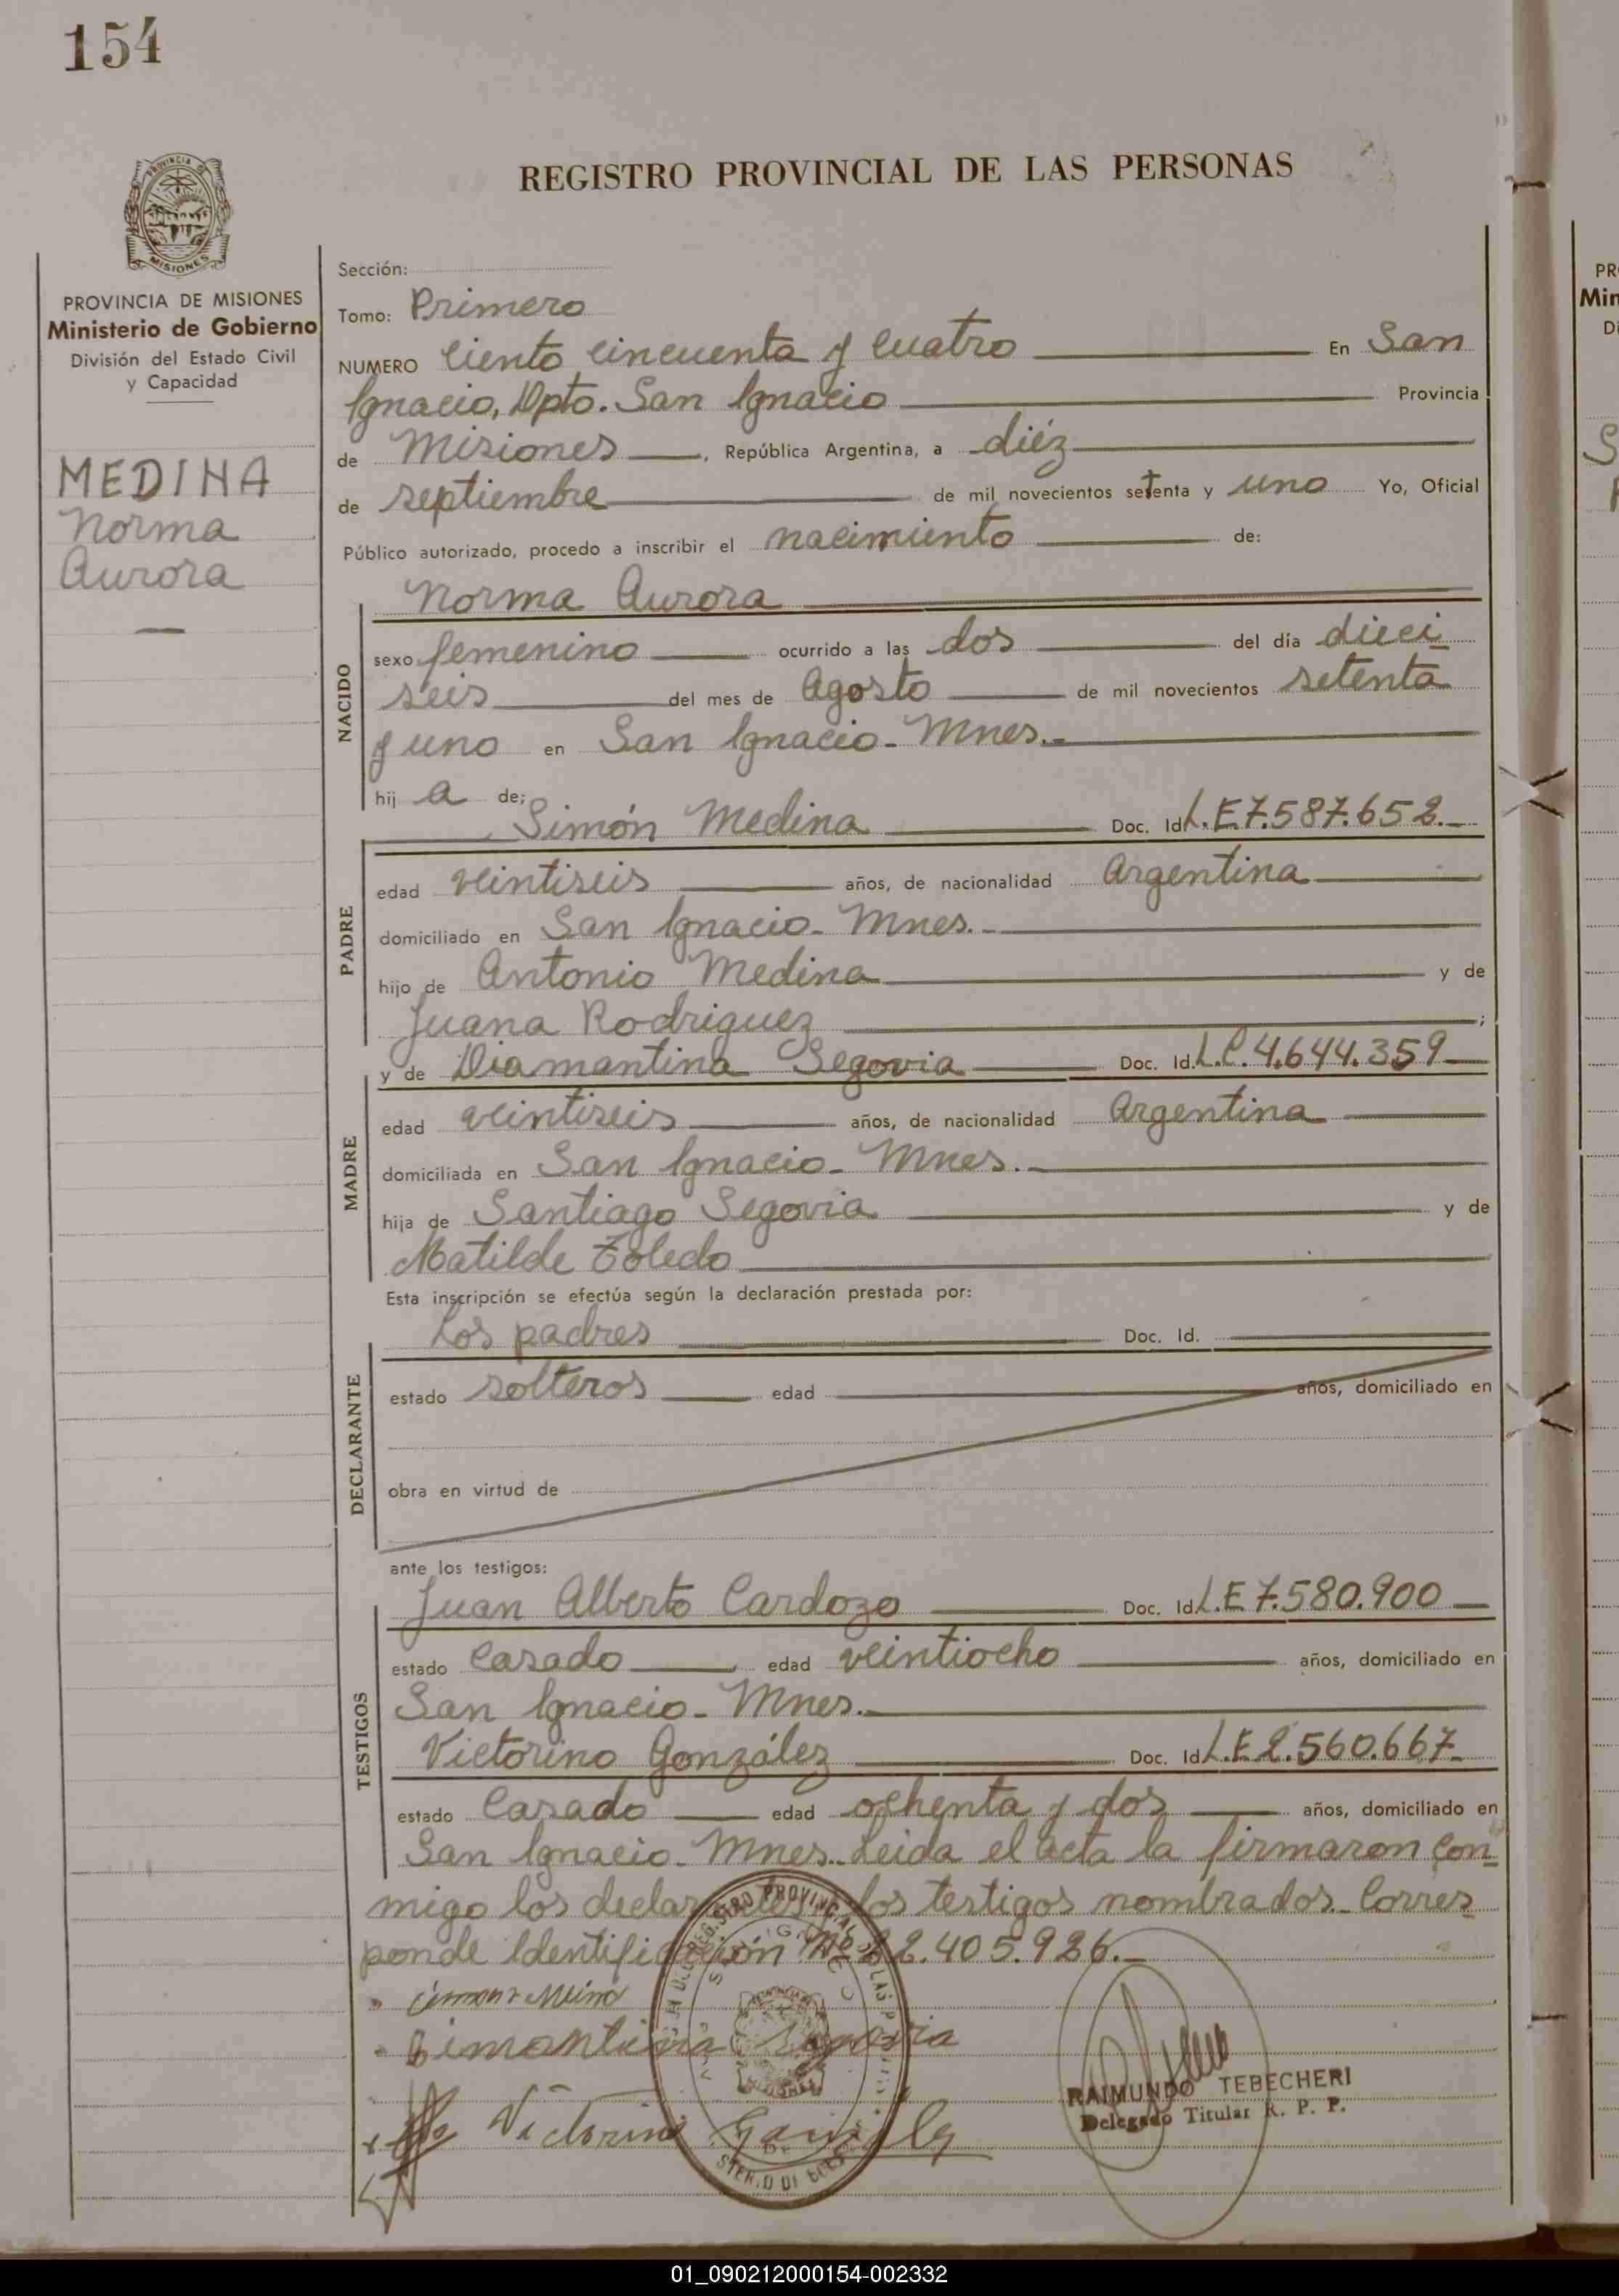 154
REGISTRO PROVINCIAL DE LAS PERSONAS
PROVINCIA
MISIONES
PROVINCIA DE MISIONES
Ministerio de Gobierno
División del Estado Civil
y Capacidad
MEDINA
Norma
Aurora
Sección:
Tomo: Primero
NUMERO Ciento Cincuenta y Cuatro En San
Ignacio, Dpto. San Ignacio Provincia
de Misiones, República Argentina, a diéz
de septiembre de mil novecientos setenta y uno Yo, Oficial
Público autorizado, procedo a inscribir el nacimiento de:
Norma Aurora
NACIDO
sexo femenino ocurrido a las dos del día dieci
seis del mes de Agosto de mil novecientos setenta
y uno en San Ignacio - Mnes.-
hij a de;
Simón Medina Doc. Id. L.E.7.587.652.-
PADRE
edad veintiseis años, de nacionalidad Argentina
domiciliado en San Ignacio - Mnes.-
hijo de Antonio Medina y de
Juana Rodriguez ;
y de Diamantina Segovia Doc. Id. L.C.4.644.359-
MADRE
edad veintiseis años, de nacionalidad Argentina
domiciliada en San Ignacio - Mnes.-
hija de Santiago Segovia y de
Matilde Toledo
Esta inscripción se efectúa según la declaración prestada por:
Los padres Doc. Id.
DECLARANTE
estado solteros edad años, domiciliado en
obra en virtud de
ante los testigos:
Juan Alberto Cardozo Doc. Id. L.E.7.580.900-
TESTIGOS
estado Casado edad veintiocho años, domiciliado en
San Ignacio - Mnes.-
Victorino González Doc. Id. L.E.2.560.667.-
estado Casado edad ochenta y dos años, domiciliado en
San Ignacio - Mnes.- Leida el acta la firmaron con
migo los declarantes y los testigos nombrados.- Corres
ponde Identificación Nº 22.405.926.-
Segovia
Victorino
RAIMUNDO TEBECHERI
Delegado Titular R. P. P.
PR
Min
D
01_090212000154-002332